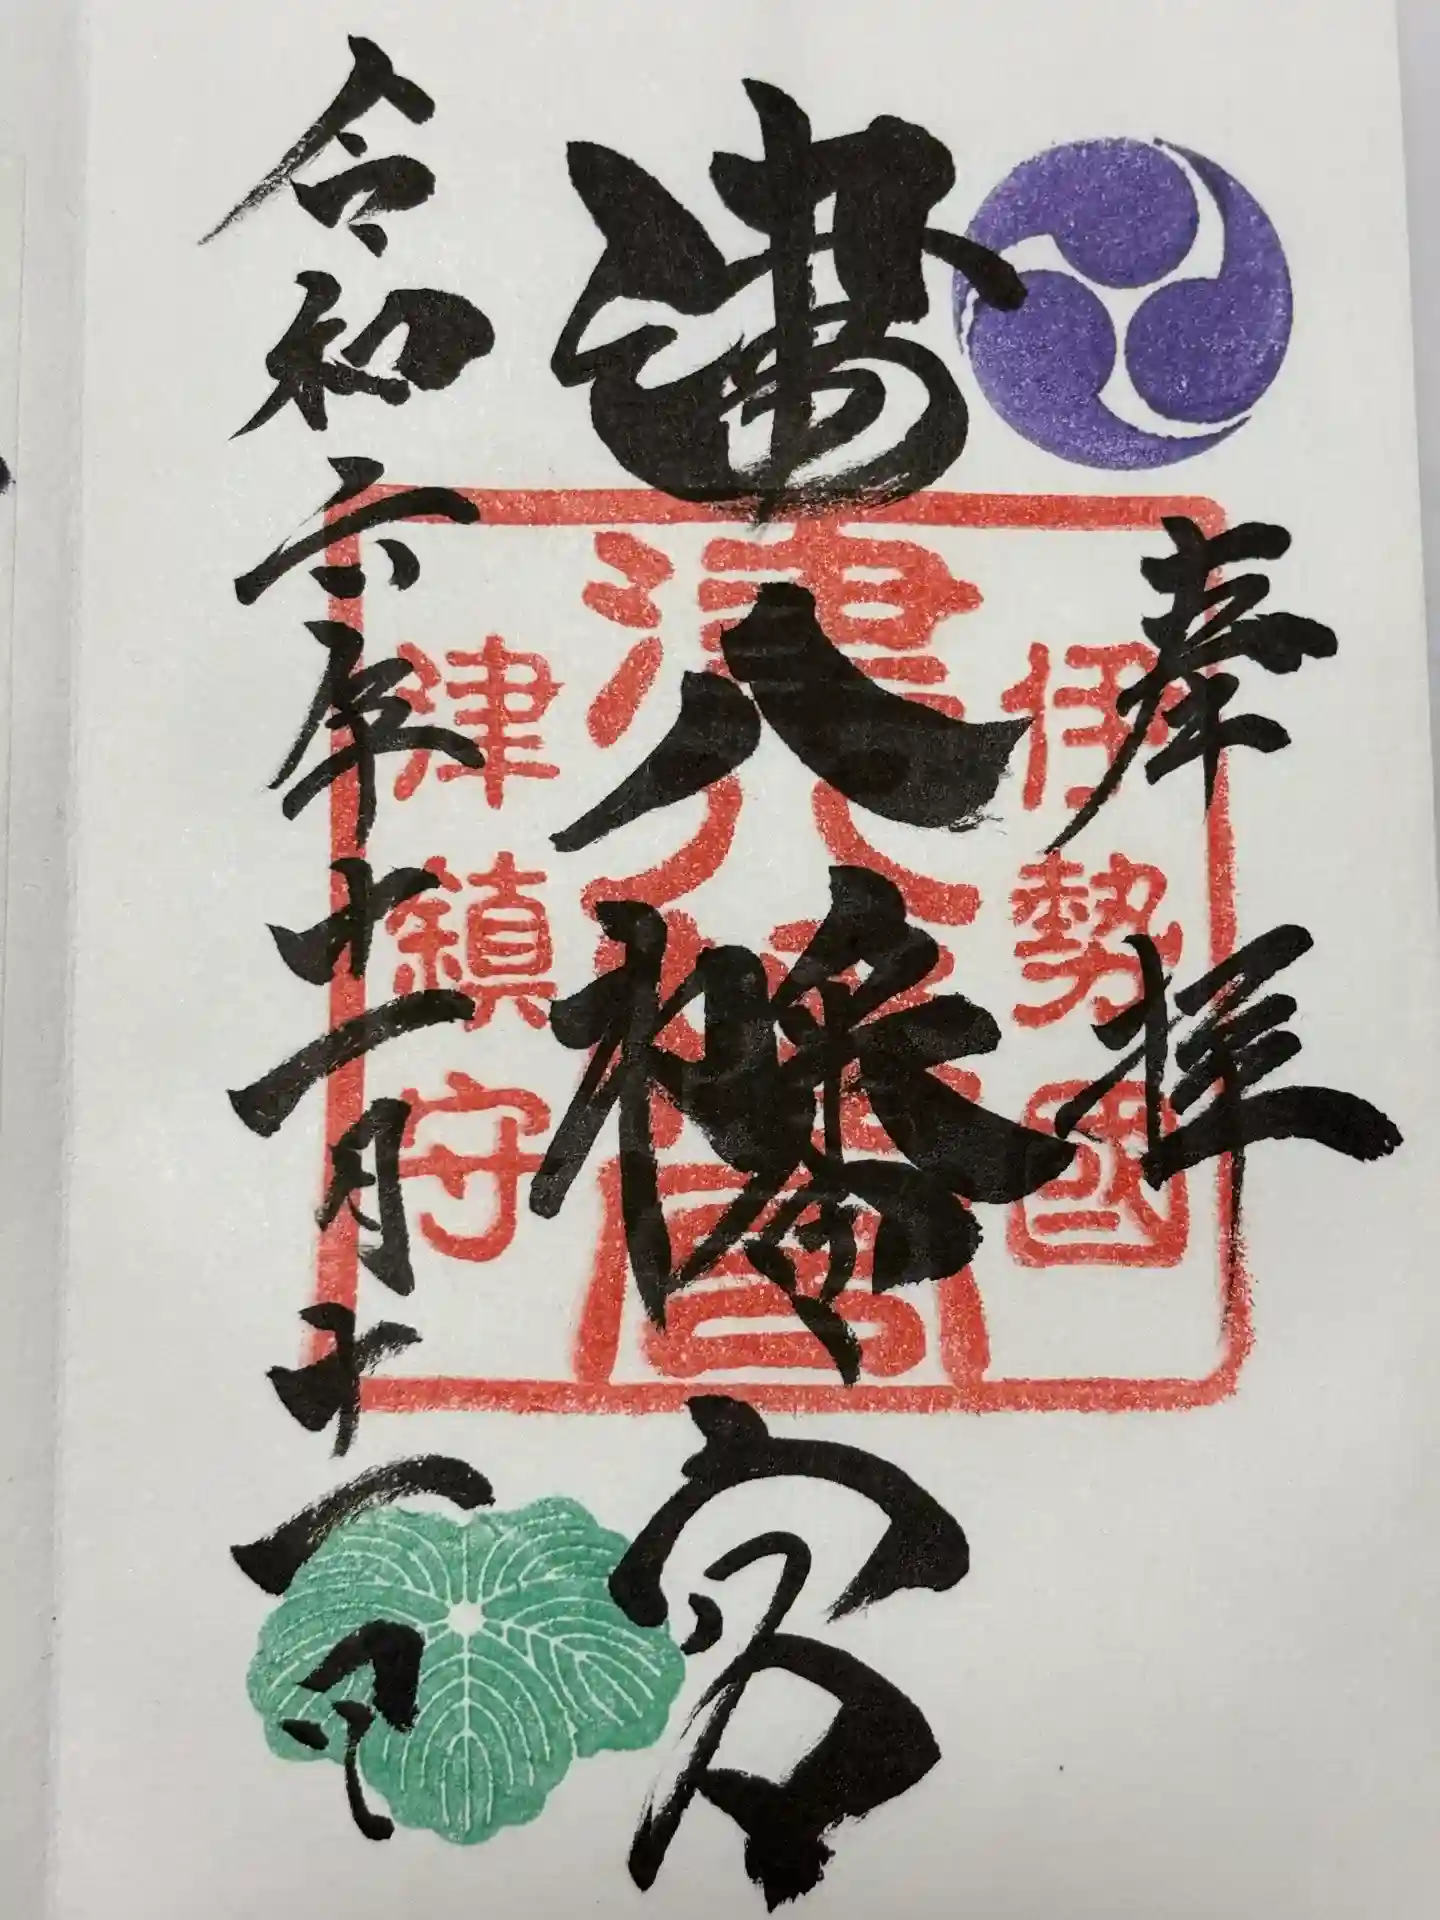 奉拝
伊勢國
津八幡宮
津八幡宮
津鎮守
令和六年十一月十一日